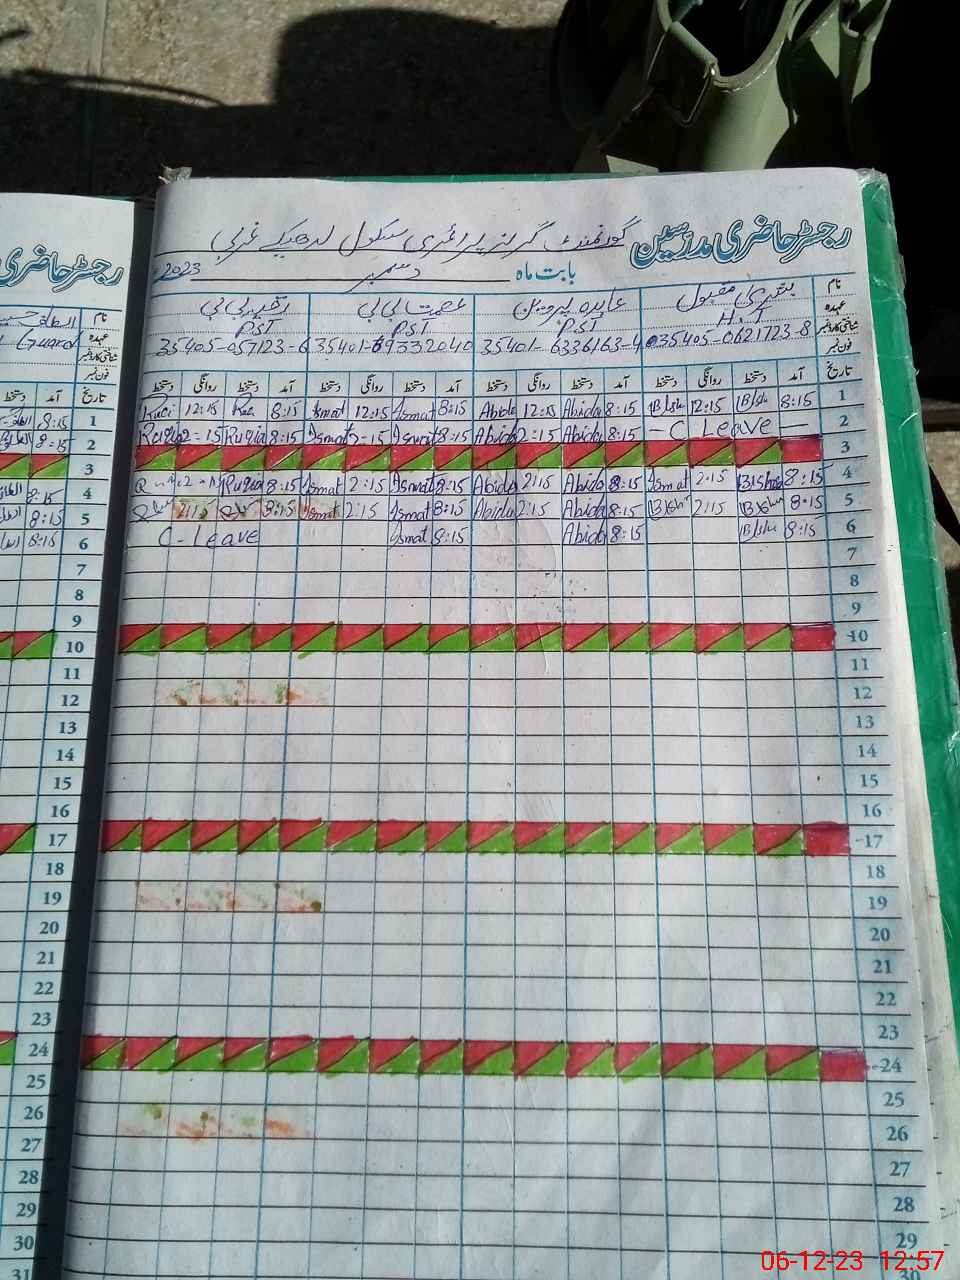 رجسٹر حاضری مدرسین گورنمنٹ گرلز پرائمری سکول لدھیکے غربی
بابت ماہ دسمبر 2023
نام بشریٰ مقبول عابدہ پروین عصمت بی بی رقیہ بی بی
عہدہ H.T PST PST PST
شناختی کارڈ نمبر 35405-0621723-8 35401-6336163-4 35401-69332040 35405-057123-6
فون نمبر
تاریخ آمد دستخط روانگی دستخط آمد دستخط روانگی دستخط آمد دستخط روانگی دستخط آمد دستخط روانگی دستخط
1 8:15 Bsh 12:15 Bsh 8:15 Abida 12:15 Abida 8:15 Asmat 12:15 Asmat 8:15 Ruqi 12:15 Ruqi
2 — C Leave — 8:15 Abida 2:15 Abida 8:15 Asmat 2:15 Asmat 8:15 Ruqia 2-15 Ruqia
3
4 8:15 Bishra 2:15 Asmat 8:15 Abida 2:15 Abida 8:15 Asmat 2:15 Asmat 8:15 Ruqia
5 8:15 Bsh 2:15 Bsh 8:15 Abida 2:15 Abida 8:15 Asmat 2:15 Asmat 8:15 2:15
6 8:15 Bsh 8:15 Abida 8:15 Asmat C-Leave
7
8
9
10
11
12
13
14
15
16
17
18
19
20
21
22
23
24
25
26
27
28
29
رجسٹر حاضری
نام الطاف حسین
عہدہ Guard
شناختی کارڈ نمبر
فون نمبر
تاریخ آمد دستخط
1 8:15
2 8:15
3
4 8:15
5 8:15
6 8:15
7
8
9
10
11
12
13
14
15
16
17
18
19
20
21
22
23
24
25
26
27
28
29
30
31
06-12-23 12:57